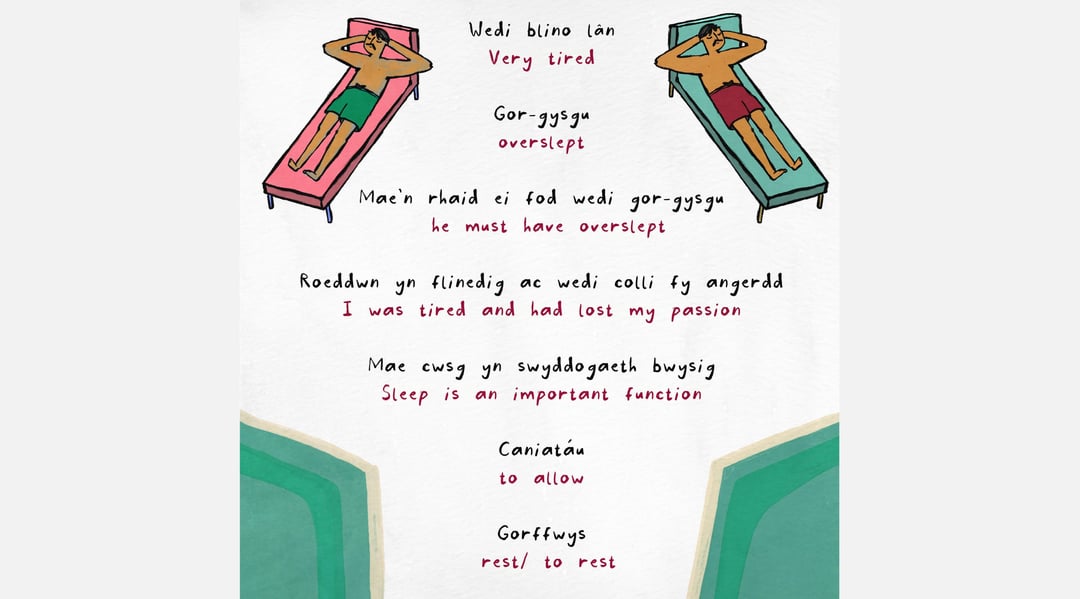 Wedi blino lân
Very tired
Gor-gysgu
overslept
Mae'n rhaid ei fod wedi gor-gysgu
he must have overslept
Roeddwn yn flinedig ac wedi colli fy angerdd
I was tired and had lost my passion
Mae cwsg yn swyddogaeth bwysig
Sleep is an important function
Caniatáu
to allow
Gorffwys
rest/ to rest